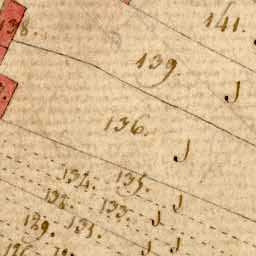 138.
141.
139.
J
136.
J
134. 135.
J
132. 133.
J
129. 131.
J
J